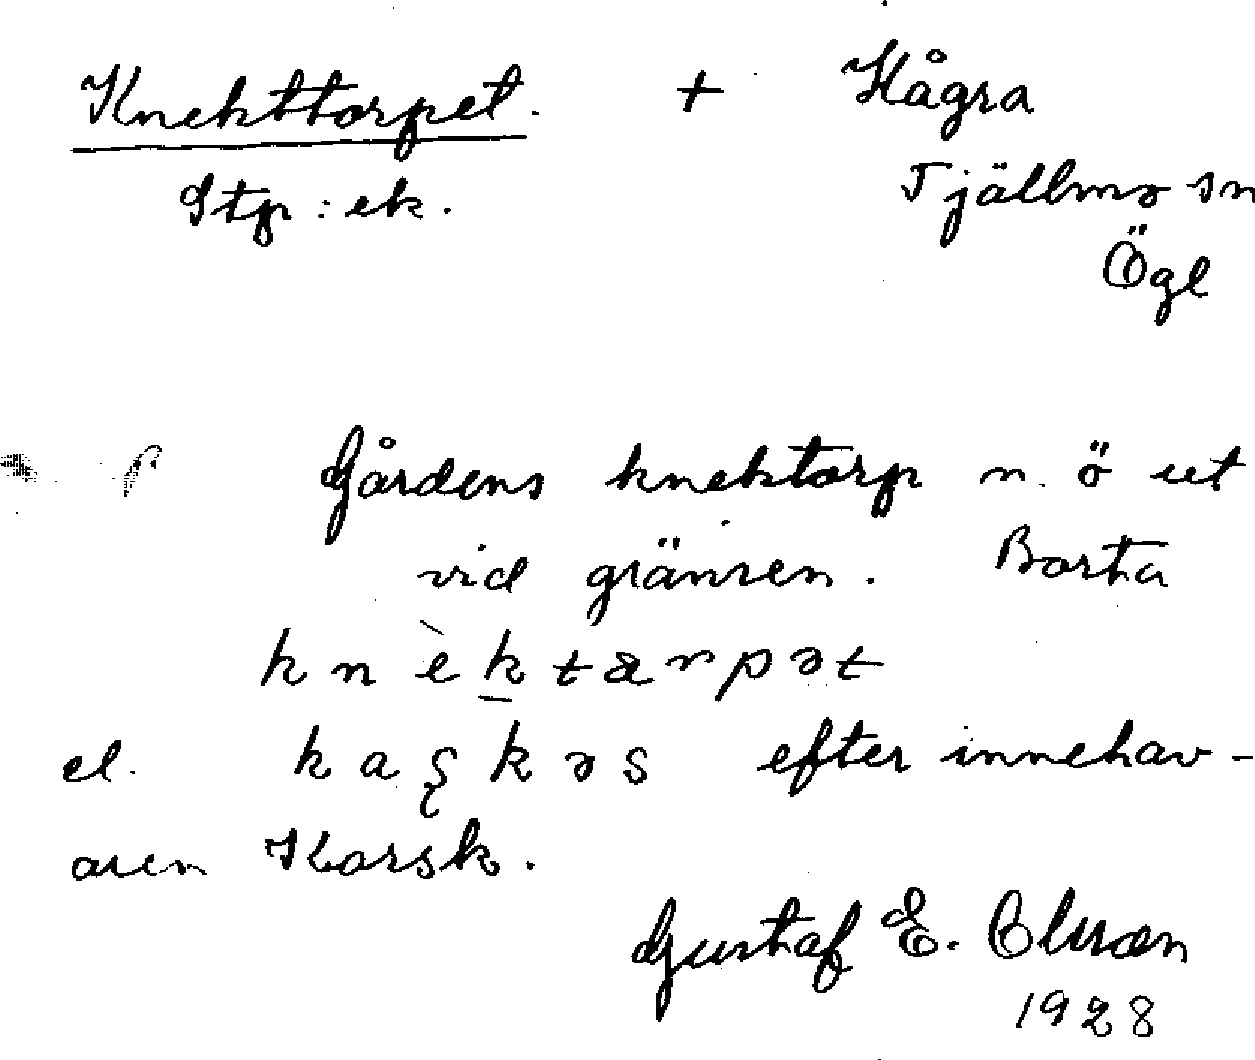 Knekttorpet. + Hågra
Stp: ek. Tjällmo sn
Ögl
Gårdens knektorp n. ö ut
vid gränsen. Borta
knèktærpət
el. kaʂkəs efter innehav-
aren Karsk.
Gustaf E. Olsson
1928